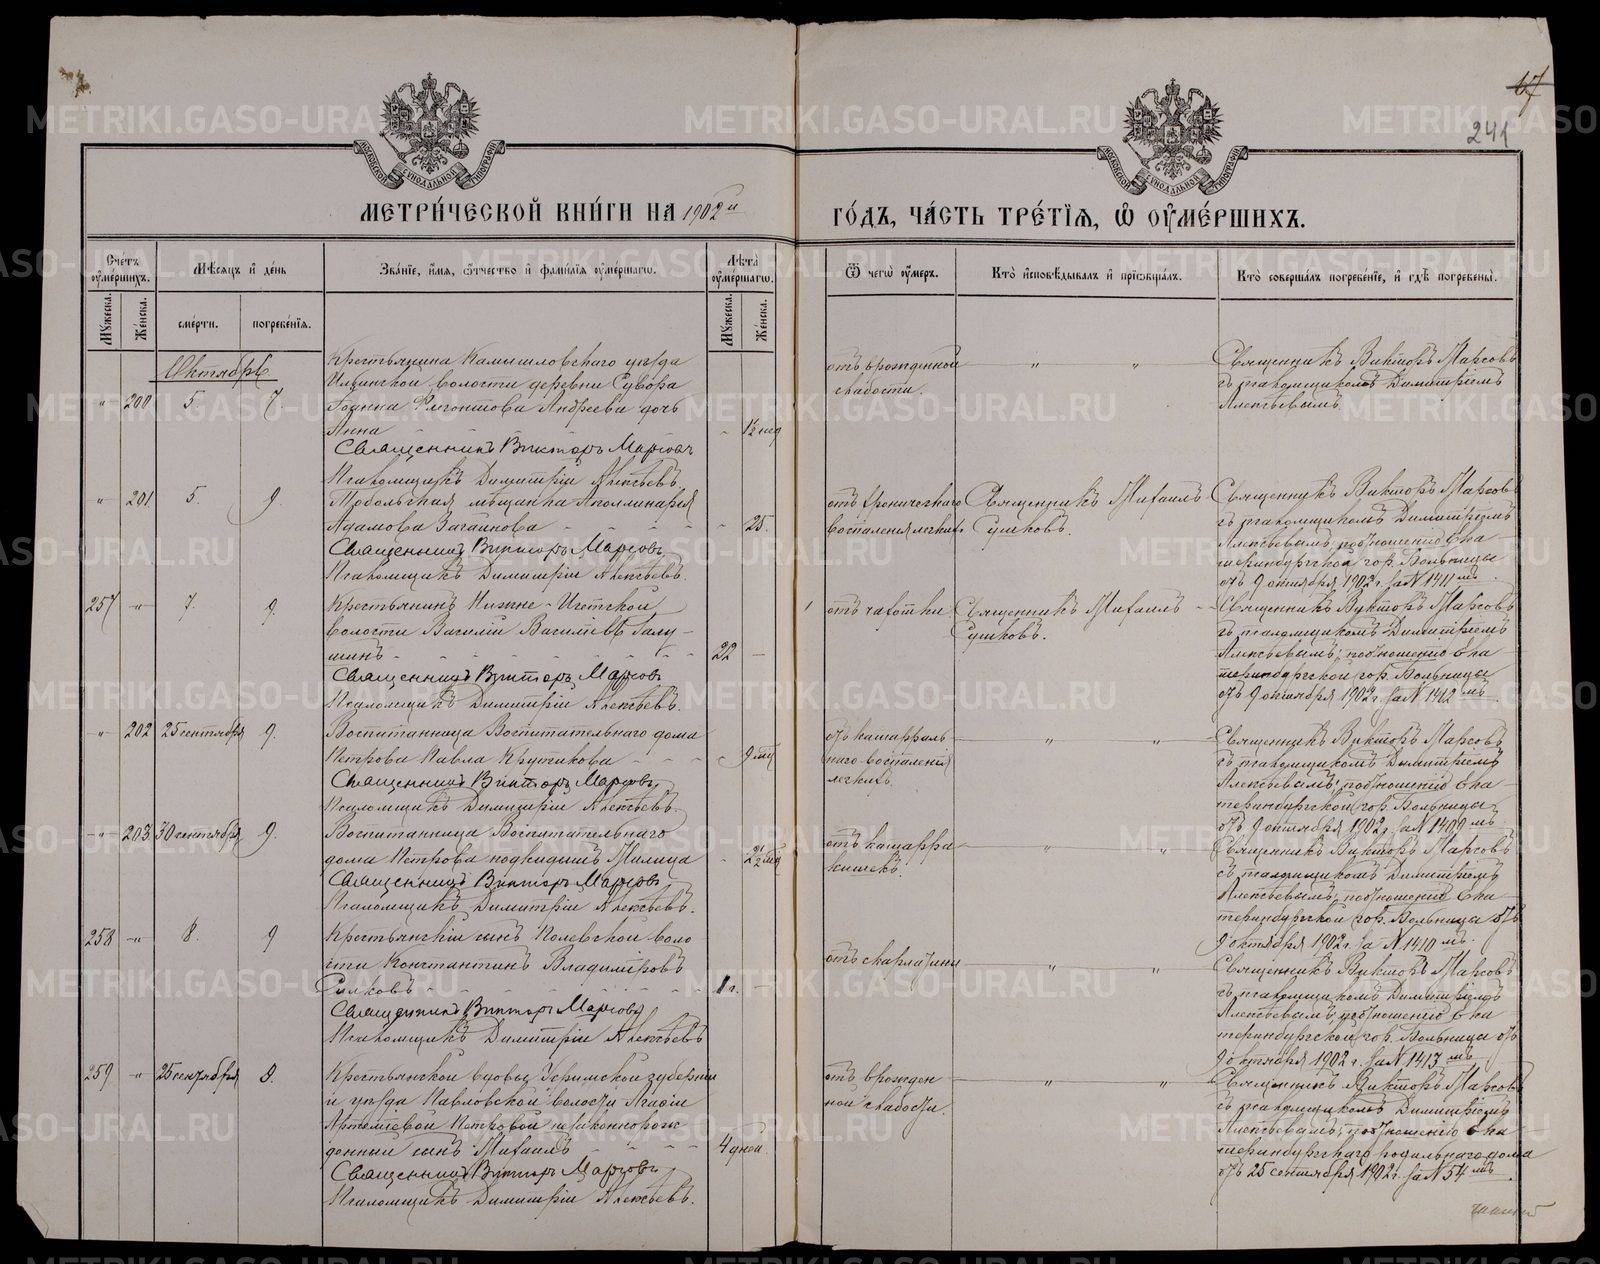 67
241
МОСКОВСКОЙ СѴНОДАЛЬНОЙ ТИПОГРАФІИ
МОСКОВСКОЙ СѴНОДАЛЬНОЙ ТИПОГРАФІИ
МЕТРИ́ЧЕСКОЙ КНИ́ГИ НА 1902й
ГО́ДЪ, ЧА́СТЬ ТРЕ́ТІѦ, Ѡ҆ ОУ҆МЕ́РШИХЪ.
Счетъ оумершихъ.
Мѣсяцъ и день
Званіе, имя, отчество и фамилія оумершагѡ.
Лѣта оумершагѡ.
Ѿ чегѡ оумеръ.
Кто исповѣдывалъ и пріобщалъ.
Кто совершалъ погребеніе, и гдѣ погребены.
Мужеска.
Женска.
смерти.
погребенія.
Мужеска.
Женска.
Октябрь
" 200 5. 7.
Крестьянина Камышловскаго уѣзда
Ильинской волости деревни Сувора
Іоанна Андреева дочь
Анна - 1½ нед
Священникъ Викторъ Марсовъ
Псаломщикъ Димитрій Алексѣевъ
отъ врожденной
слабости.
" "
Священникъ Викторъ Марсовъ
съ псаломщикомъ Димитріемъ
Алексѣевымъ.
" 201 5. 9.
Тобольская мѣщанка Аполлинарія
Адамова Загаинова - 25.
Священникъ Викторъ Марсовъ
Псаломщикъ Димитрій Алексѣевъ.
отъ хроническаго
воспаленія легкихъ
Священникъ Михаилъ
Сушковъ.
Священникъ Викторъ Марсовъ
съ псаломщикомъ Димитріемъ
Алексѣевымъ; по отношенію Ека
теринбургской гор. больницы
отъ 9 октября 1902 г. за № 1411 мъ.
257 " 7. 9.
Крестьянинъ Нижне-Исетской
волости Василій Васильевъ Галу-
шинъ 22 -
Священникъ Викторъ Марсовъ
Псаломщикъ Димитрій Алексѣевъ.
отъ чахотки
Священникъ Михаилъ
Сушковъ.
Священникъ Викторъ Марсовъ
съ псаломщикомъ Димитріемъ
Алексѣевымъ; по отношенію Ека
теринбургской гор. больницы
отъ 9 октября 1902 г. за № 1412 мъ.
" 202 25 сентября 9.
Воспитанница Воспитательнаго дома
Петрова Павла Крутикова - 9 мѣс
Священникъ Викторъ Марсовъ
Псаломщикъ Димитрій Алексѣевъ.
отъ катарраль
наго воспаленія
легкихъ.
" "
Священникъ Викторъ Марсовъ
съ псаломщикомъ Димитріемъ
Алексѣевымъ; по отношенію Ека
теринбургской гор. больницы
отъ 9 октября 1902 г. за № 1409 мъ
" 203 30 сентября 9.
Воспитанница Воспитательнаго
дома Петрова подкидышъ Милица - 2½ мѣс
Священникъ Викторъ Марсовъ
Псаломщикъ Димитрій Алексѣевъ.
отъ катарра
кишекъ.
" "
Священникъ Викторъ Марсовъ
съ псаломщикомъ Димитріемъ
Алексѣевымъ; по отношенію Ека
теринбургской гор. больницы отъ
9 октября 1902 г. за № 1410 мъ.
258 " 8. 9
Крестьянскій сынъ Полевской воло
сти Константинъ Владиміровъ
Силковъ 1 г. -
Священникъ Викторъ Марсовъ
Псаломщикъ Димитрій Алексѣевъ
отъ скарлатины
" "
Священникъ Викторъ Марсовъ
съ псаломщикомъ Димитріемъ
Алексѣевымъ по отношенію Ека
теринбургской гор. больницы отъ
9 октября 1902 г. за № 1413 мъ
259 " 25 сентября 8.
Крестьянской вдовы Уфимской губерніи
и уѣзда Павловской волости Агафіи
Артеміевой Петровой незаконнорож
денный сынъ Михаилъ 4 дней.
Священникъ Викторъ Марсовъ
Псаломщикъ Димитрій Алексѣевъ.
отъ врожден
ной слабости.
" "
Священникъ Викторъ Марсовъ
съ псаломщикомъ Димитріемъ
Алексѣевымъ; по отношенію Ека
теринбургскаго родильнаго дома
отъ 25 сентября 1902 г. за № 54 мъ
METRIKI.GASO-URAL.RU